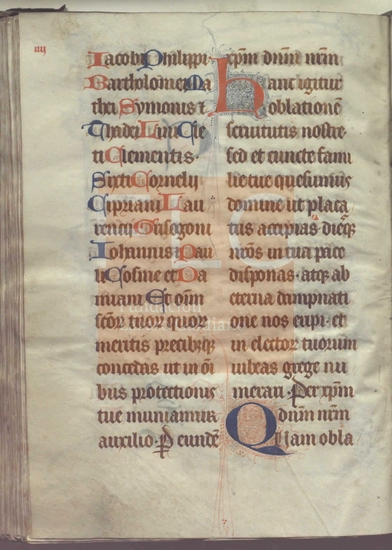 iiij
Iacobi Philippi·
Bartholomei Ma
thei Symonis ⁊
Thadei Lini Cle
ti Clementis·
Sixti Cornelij
Cipriani Lau
rencij Grisogoni
Iohannis ⁊ Pau
li Cosme et Da
miani Et om̄
sc̄oꝝ tuoꝝ quoꝝ
meritis precibꝫqꝫ
concedas ut in oī
bus protectionis
tue muniamur
auxilio· P eundē
xp̄m dn̄m nr̄m
Hanc igitur
oblationē
seruitutis nostre·
sed et cuncte fami
lie tue quesumus
domine ut placa
tus accipias· dieqꝫ
nr̄os in tua pace
disponas· atqꝫ ab
eterna dampnati
one nos eripi· et
in electoꝝ tuorum
iubeas grege nu
merari· Per xp̄m
dn̄m nr̄m
Quam obla